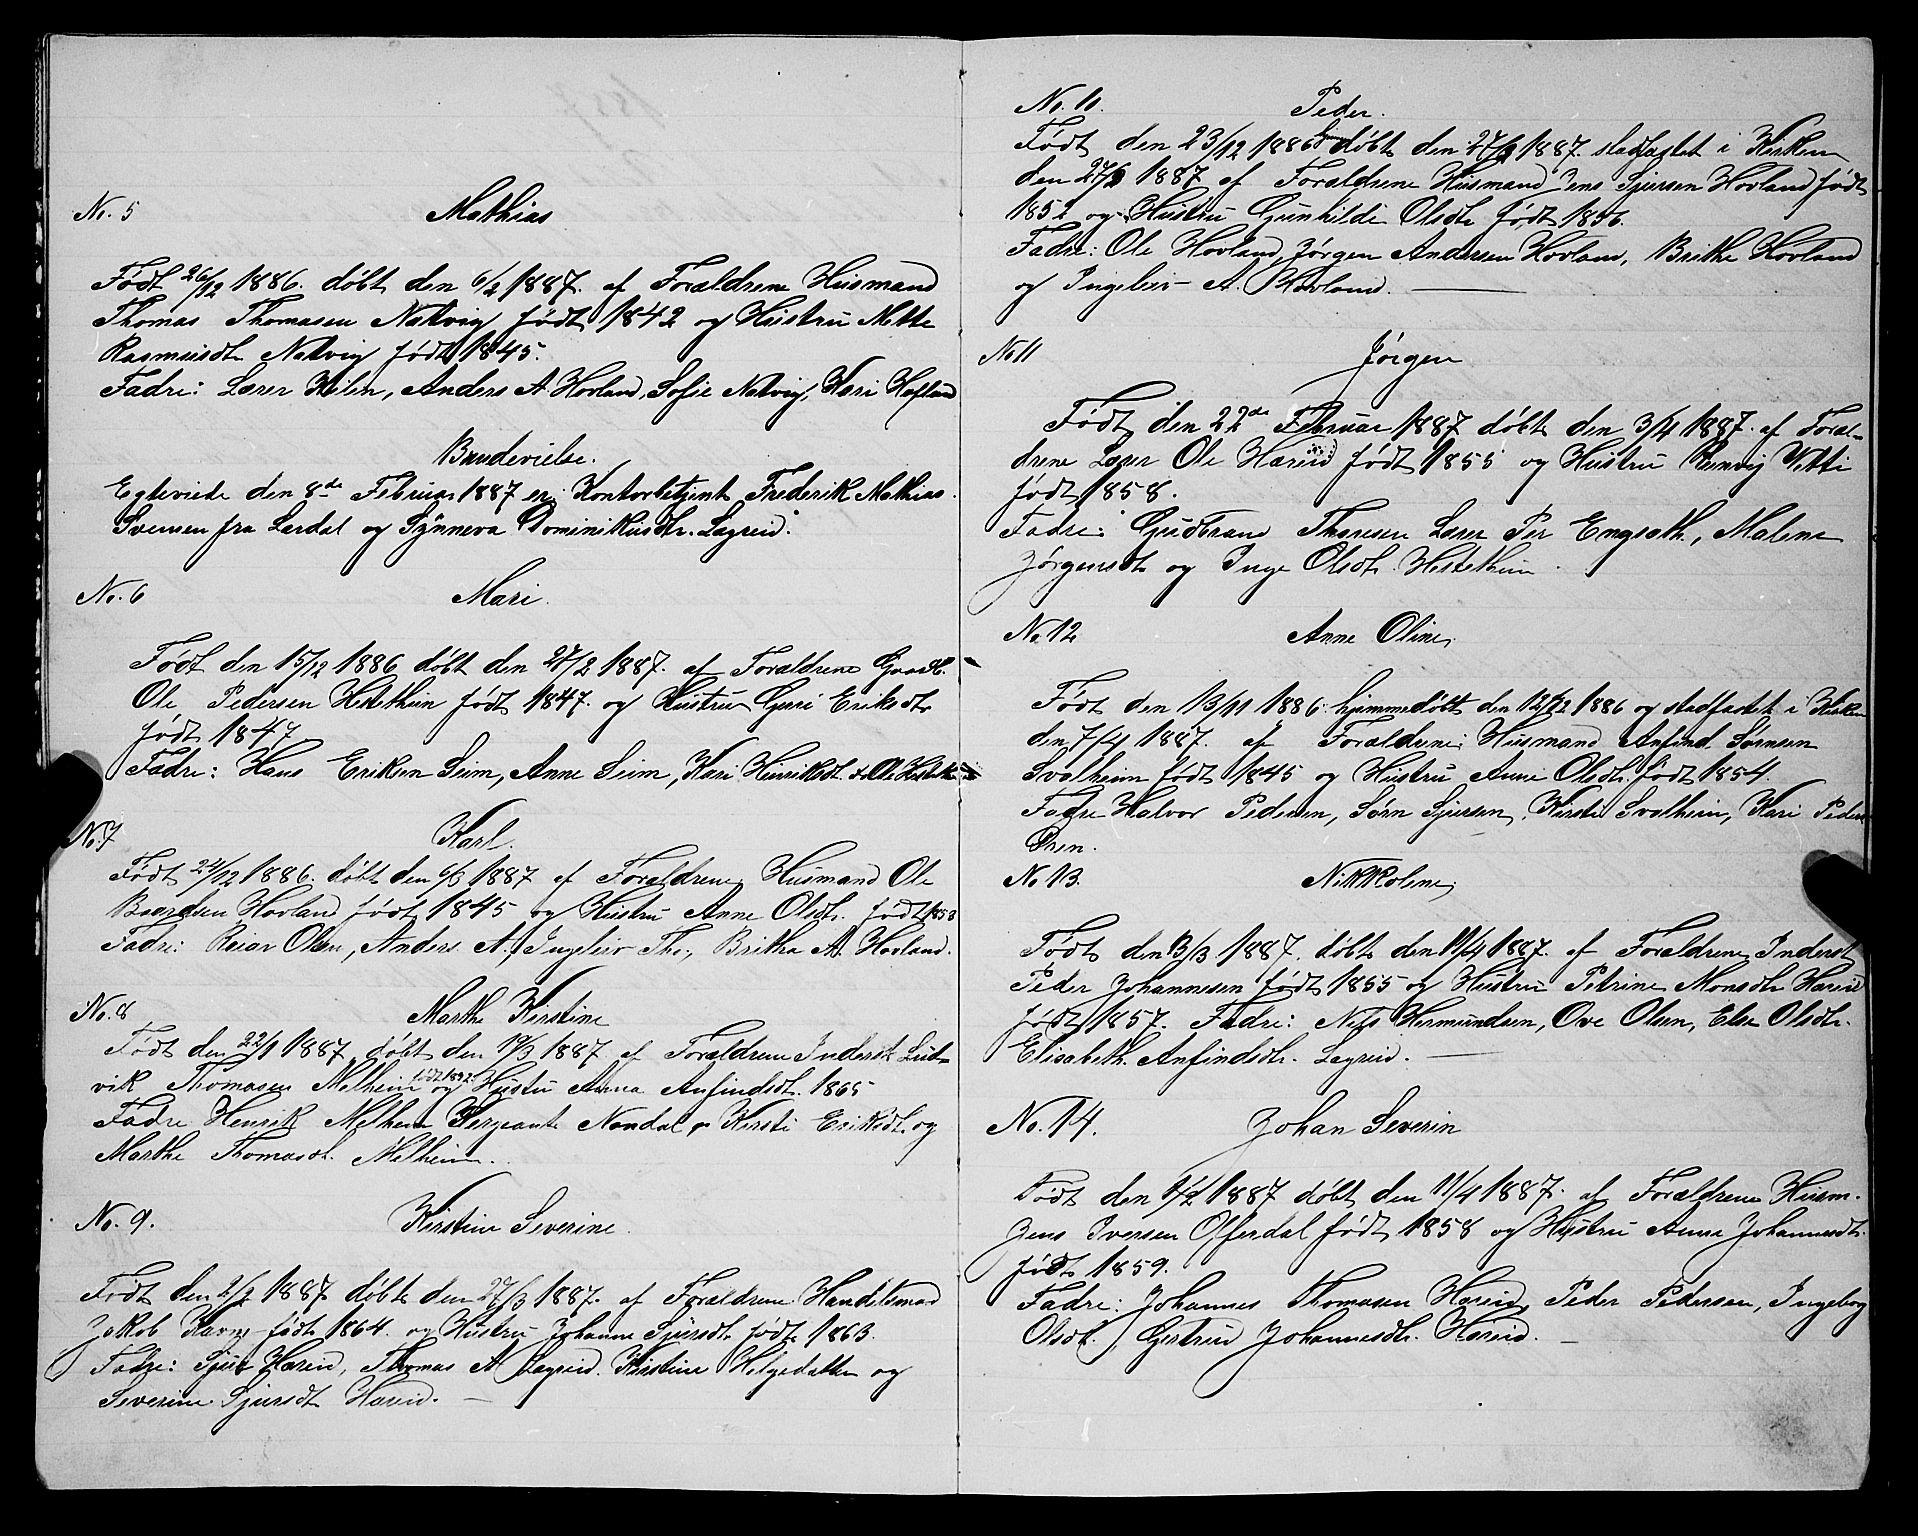 No. 5 Mathias
Født 26/12 1886. døbt den 6/2 1887. af Forældrene Husmand
Thomas Thomasen Natvig født 1842 og Hustru Mette
Rasmusdt. Natvig født 1845.
Fadre: Lærer Hilen, Anders A. Hovland, Sofie Natvig, Kari Hofland
Brudevielse.
Egteviede den 8de Februar 1887 er Kontorbetjent Frederik Mathias
Svensen fra Lerdal og Synneva Dominikusdtr. Lægreid.
No. 6 Mari.
Født den 15/12 1886 døbt den 27/2 1887. af Forældrene Gaardb.
Ole Pedersen Hestethun født 1847. og Hustru Guri Eriksdtr
født 1847
Fadre: Hans Eriksen Seim, Anne Seim, Kari Henriksdt. Ole
No. 7 Karl.
Født 24/12 1886. døbt den 6/3 1887 af Forældrene Husmand Ole
Baardsen Hovland født 1845 og Hustru Anne Olsdt. født 1853
Fadre: Reiar Olsen, Anders A., Ingleiv Th., Britha A. Hovland.
No. 8 Marthe Kirstine
Født den 22/1 1887, døbt den 13/3 1887. af Forældrene Inderst Lud-
vik Thomasen Melheim født 1892 og Hustru Anna Anfindsdt. 1865
Fadre Henrik Melheim Sergeante Nondal Kirsti Eriksdt. og
Marthe Thomasdt. Melheim.
No. 9. Kirstine Severine.
Født den 2/2 1887 døbt den 27/3 1887. af Forældrene Handelsmad
Jakob Ravn født 1864. og Hustru Johanne Sjursdt. født 1863.
Fadre: Sjur Hæreid, Thomas A. Lægreid. Kirstine Helgedatter og
Severine Sjursdt Hæreid.
No. 10. Peder.
Født den 23/12 1886 hjemmedøbt den 27/2 1887. stadfæstet i Kirken
den 27/3 1887 af Forældrene Husmand Jens Sjursen Hovland født
1852 og Hustru Gunhilde Olsdt. født 1856.
Fadre: Ole Hovland, Jørgen Andersen Hovland, Brithe Hovland
og Ingeleiv A. Hovland.
No 11 Jørgen
Født den 22de Februar 1887 døbt den 3/4 1887. af Foræl-
drene Lærer Ole Hæreid født 1855 og Hustru Rennvig Vetti
født 1858.
Fadre: Gudbrand Thoresen Lærer Per Engseth., Malene
Jørgensdt. og Inge Olsdt. Hestethun.
No. 12 Anne Oline,
Født den 13/11 1886. hjemmedøbt den 12/12 1886 og stadfæstet i Kirken
den 7/4 1887. af Forældrene Husmand Anfind Sørnsen
Svalheim født 1845 og Hustru Anne Olsdt. født 1854.
Fadre Halvor Pedersen, Sørn Sjursen, Kirsti Svalheim, Kari Peders
Øren.
No. 13. Nikkoline,
Født den 13/3. 1887. døbt den 11/4 1887. af Forældrene Inderst
Peder Johannesen født 1855 og Hustru Petrine Monsdt. Hæreid
født 1857. Fadre: Nils Hermundsen, Ove Olsen, Else Olsdt.
Elisabeth. Anfindsdt. Lægreid.
No. 14. Johan Severin
Født den 1/2 1887 døbt den 11/4 1887. af Forældrene Husm.
Jens Iversen Offerdal født 1858 og Hustru Anne Johannesdt.
født 1859.
Fadre: Johannes Thomasen Hæreid, Peder Pedersen, Ingeborg
Olsdt. Gertrud Johannesdt. Hæreid.